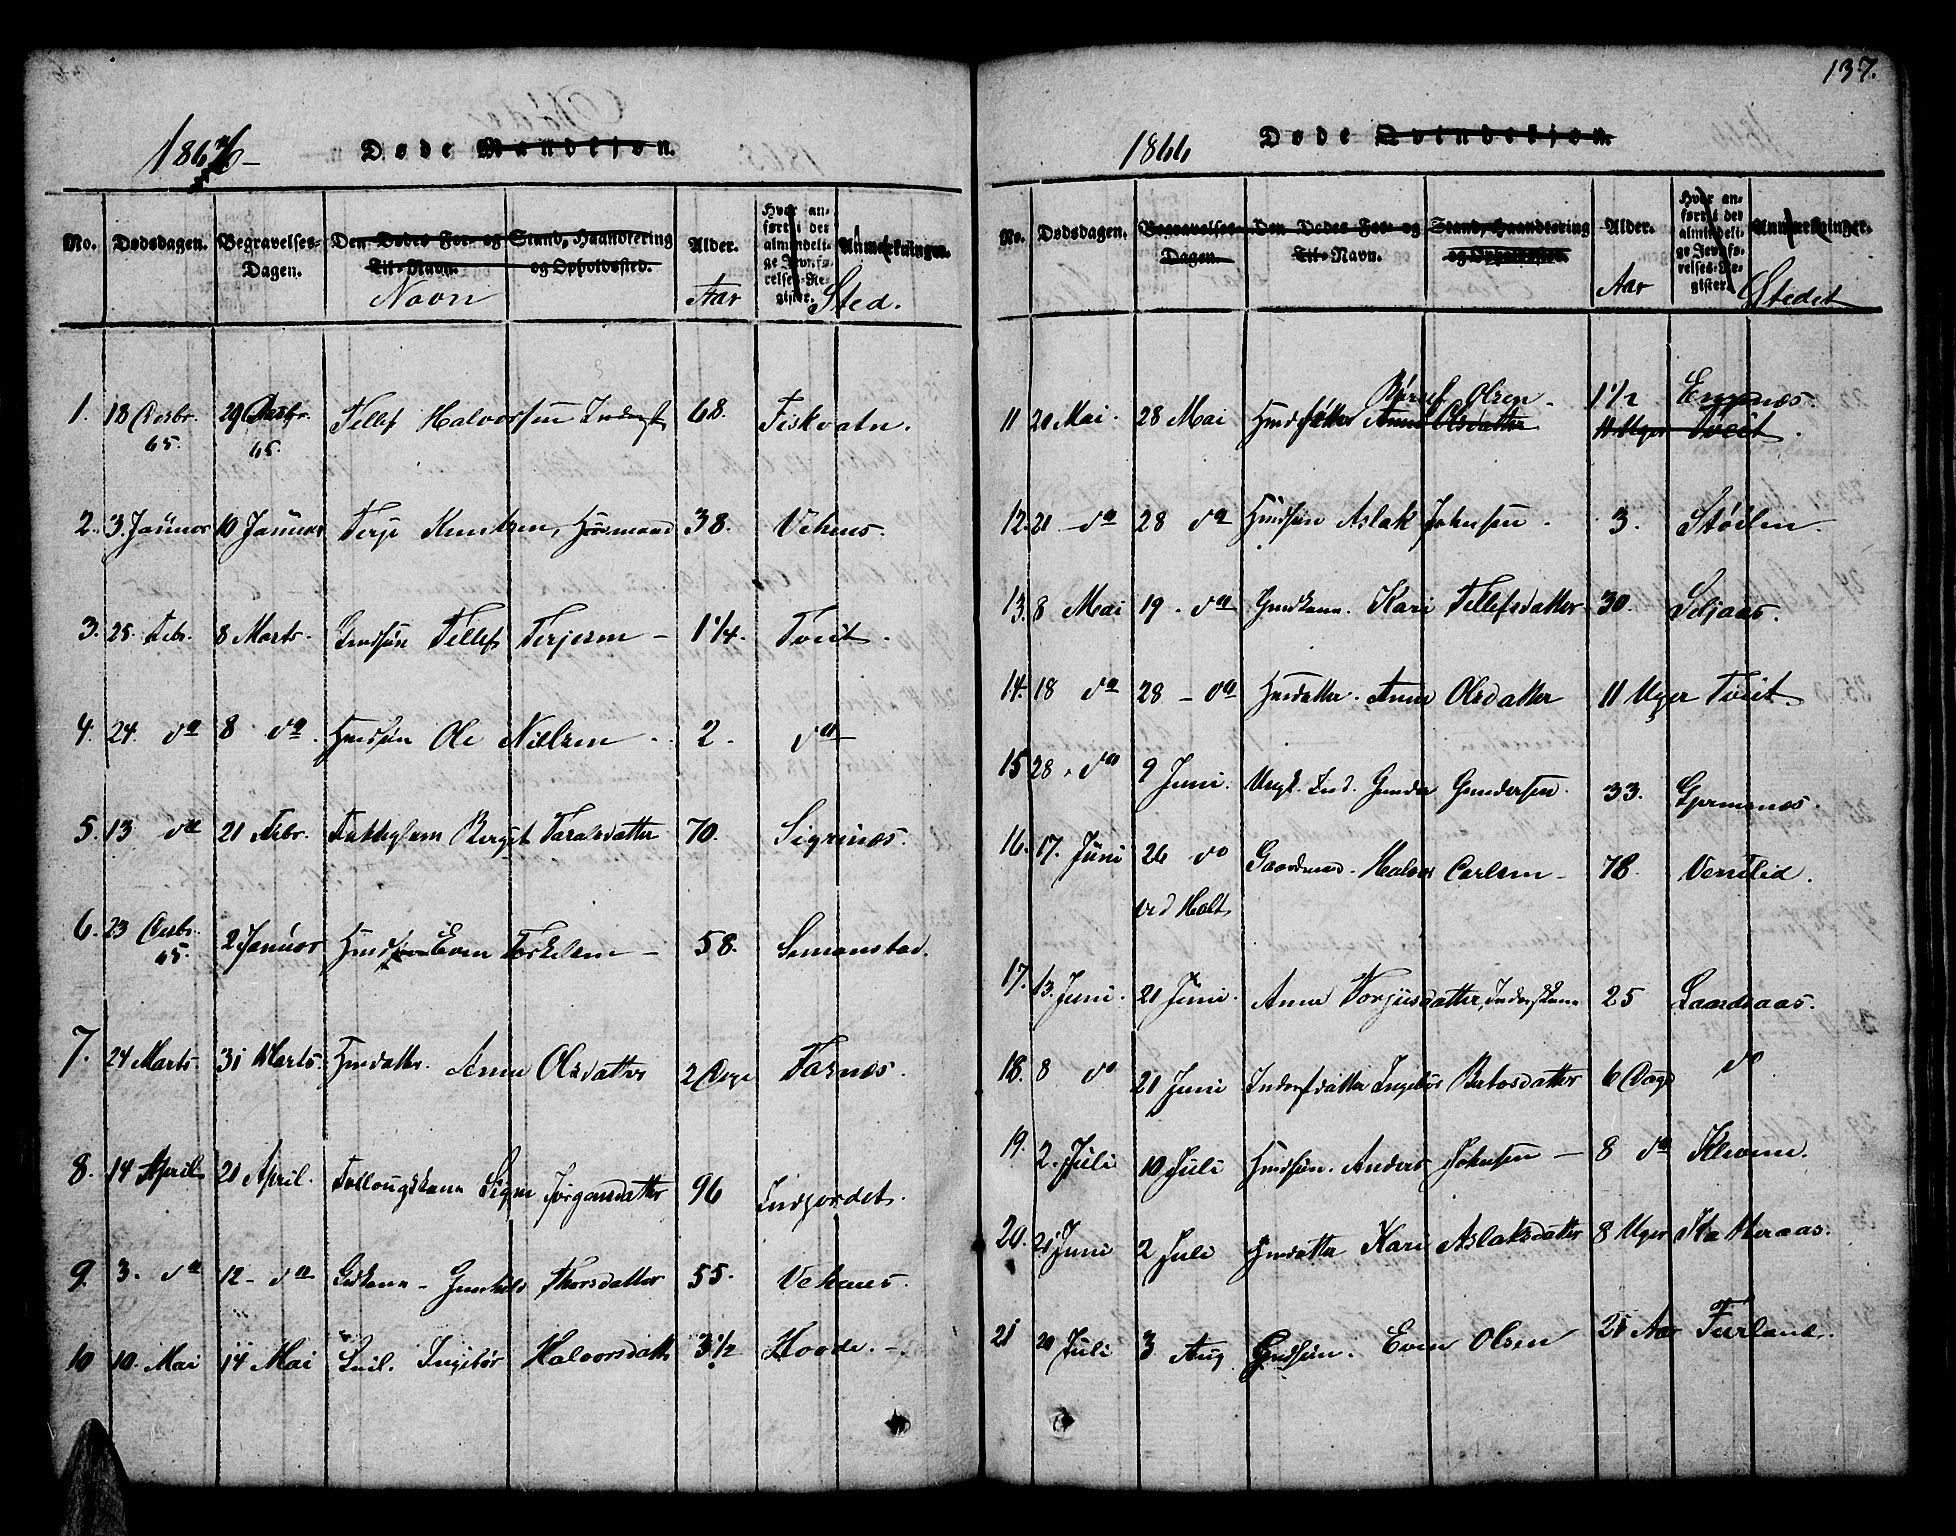 137.
1866 Døde Mandkjøn.
No. Dødsdagen. Begravelses-Dagen. Den Dødes For- og Til-Navn. Stand, Haandtering og Opholdssted. Alder. Hvor anført i det almindelige Jevnførelses-Register. Anmærkninger.
Navn Aar Sted.
1. 18 Decbr. 65. 29 Decbr. 65. Tellef Halvorsen 68. Fiskvatn.
2. 3. Januar 10 Januar Terje Knutsen, Huusmand 38. Vehuus.
3. 25. Febr. 8 Marts. Gmdsøn Tellef Terjesen – 1 1/4. Tveit.
4. 24. do 8 do. Hmdsøn Ole Nielsen. 2. do
5. 13 do 21 Febr. Fattiglem Berget Taralsdatter 70. Sigrinæs.
6. 23 Decbr. 65. 2 Januar Even Torkelsen – 58. Simonstad.
7. 24 Marts. 31 Marts. Hmdatter. Anne Olsdatter 2 Dage Tasnæs.
8. 14 April 21 April. Follougskone Signe Jørgensdatter 96 Indgjordet.
9. 3. do 12 – do Gdkone – Gunhild Thorsdatter 55. Vehuus.
10 10. Mai 14 Mai Ingebør Halvorsdatt 3 1/2 Hoode. –
1866 Døde Qvindekjøn.
No. Dødsdagen. Begravelses-Dagen. Den Dødes For- og Til-Navn. Stand, Haandtering og Opholdssted. Alder. Hvor anført i det almindelige Jevnførelses-Register. Anmærkninger.
Aar Stedet
Olsen – 1 1/2 Eppnæs.
11 20 Mai. 28 Mai Anne Olsdatter 11 Uger Tveit.
12. 21 – do 28 do Hmdsøn Aslak Johnsen. 3. Støilen.
13. 8 Mai 19 – do Gmdkone. Kari Tellefsdatter 30. Seljaas.
14. 18 do 28 – do Hmdatter. Anne Olsdatter 11 Uger Tveit.
15 28 do 9 Juni. Ungk. Ind. Gunder Gundersen. 33. Gjermenæs.
16. 17. Juni 26 do Gaardmand. Halvor Carlsen – 78. Vensteid.
ved Holt
17. 13. Juni. 21 Juni. Anne Torjusdatter, Inderstkone 25 Gaardsaas.
18. 8 do 21 Juni Inderstdatter Ingebør Birtesdatter 6 Dage do
19. 2. Juli 10 Juli Hmdsøn. Anders Johnsen – 8 do Klevene.
20. 21 Juni 2 Juli Hmdatter Kari Aslaksdatter 8 Uger Katteraas.
21 20 Juli 3 Aug Gmdsøn. Even Olsen 21 Aar Furland.